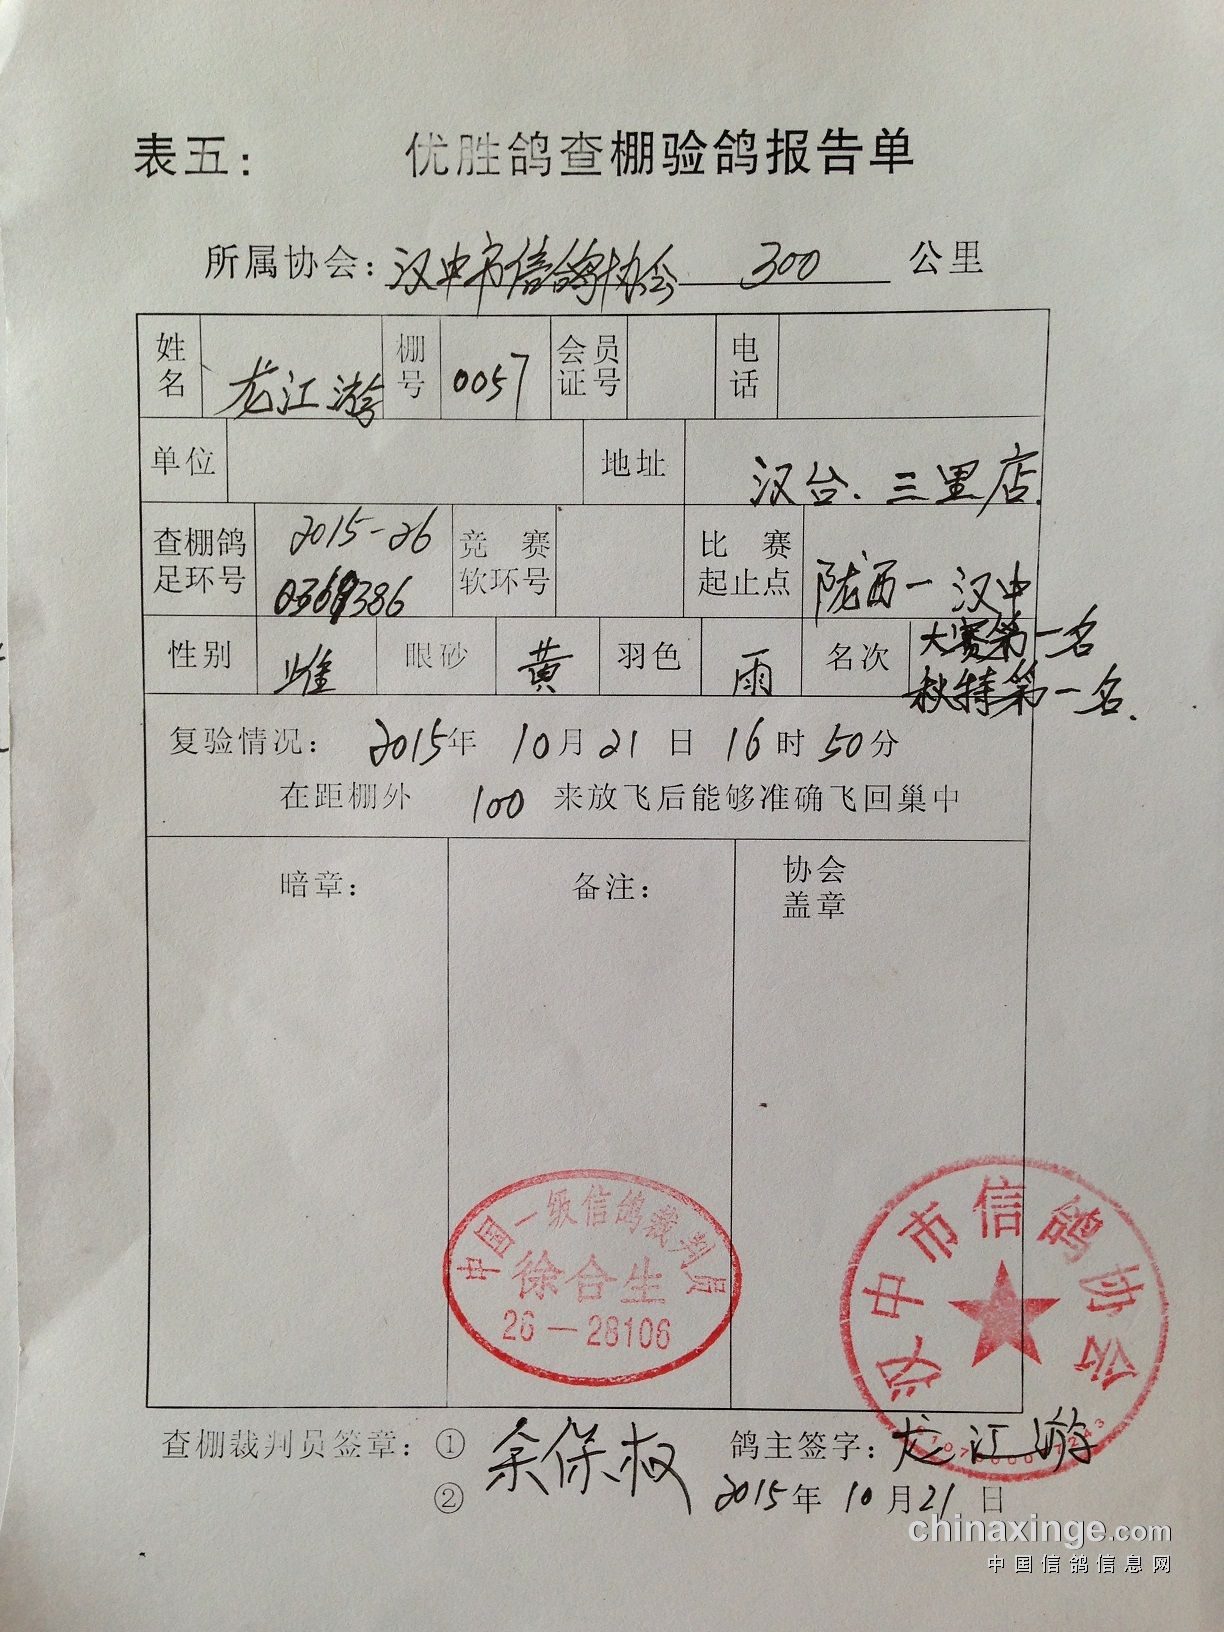 表五： 优胜鸽查棚验鸽报告单
所属协会：汉中市信鸽协会 300 公里
姓名 龙江游 棚号 0057 会员证号 电话
单位 地址 汉台、三里店.
查棚鸽足环号 2015-26 竞赛软环号 比赛起止点 陇西-汉中
性别 雌 眼砂 黄 羽色 雨 名次 大赛第一名
秋特第一名.
复验情况： 2015年 10月21日 16时50分
在距棚外 100 来放飞后能够准确飞回巢中
暗章： 备注： 协会盖章
中国一级信鸽裁判员
徐合生
26-28106
汉中市信鸽协会
查棚裁判员签章：① 余保权 鸽主签字：龙江游
② 2015年10月21日
chinaxinge.com
中国信鸽信息网